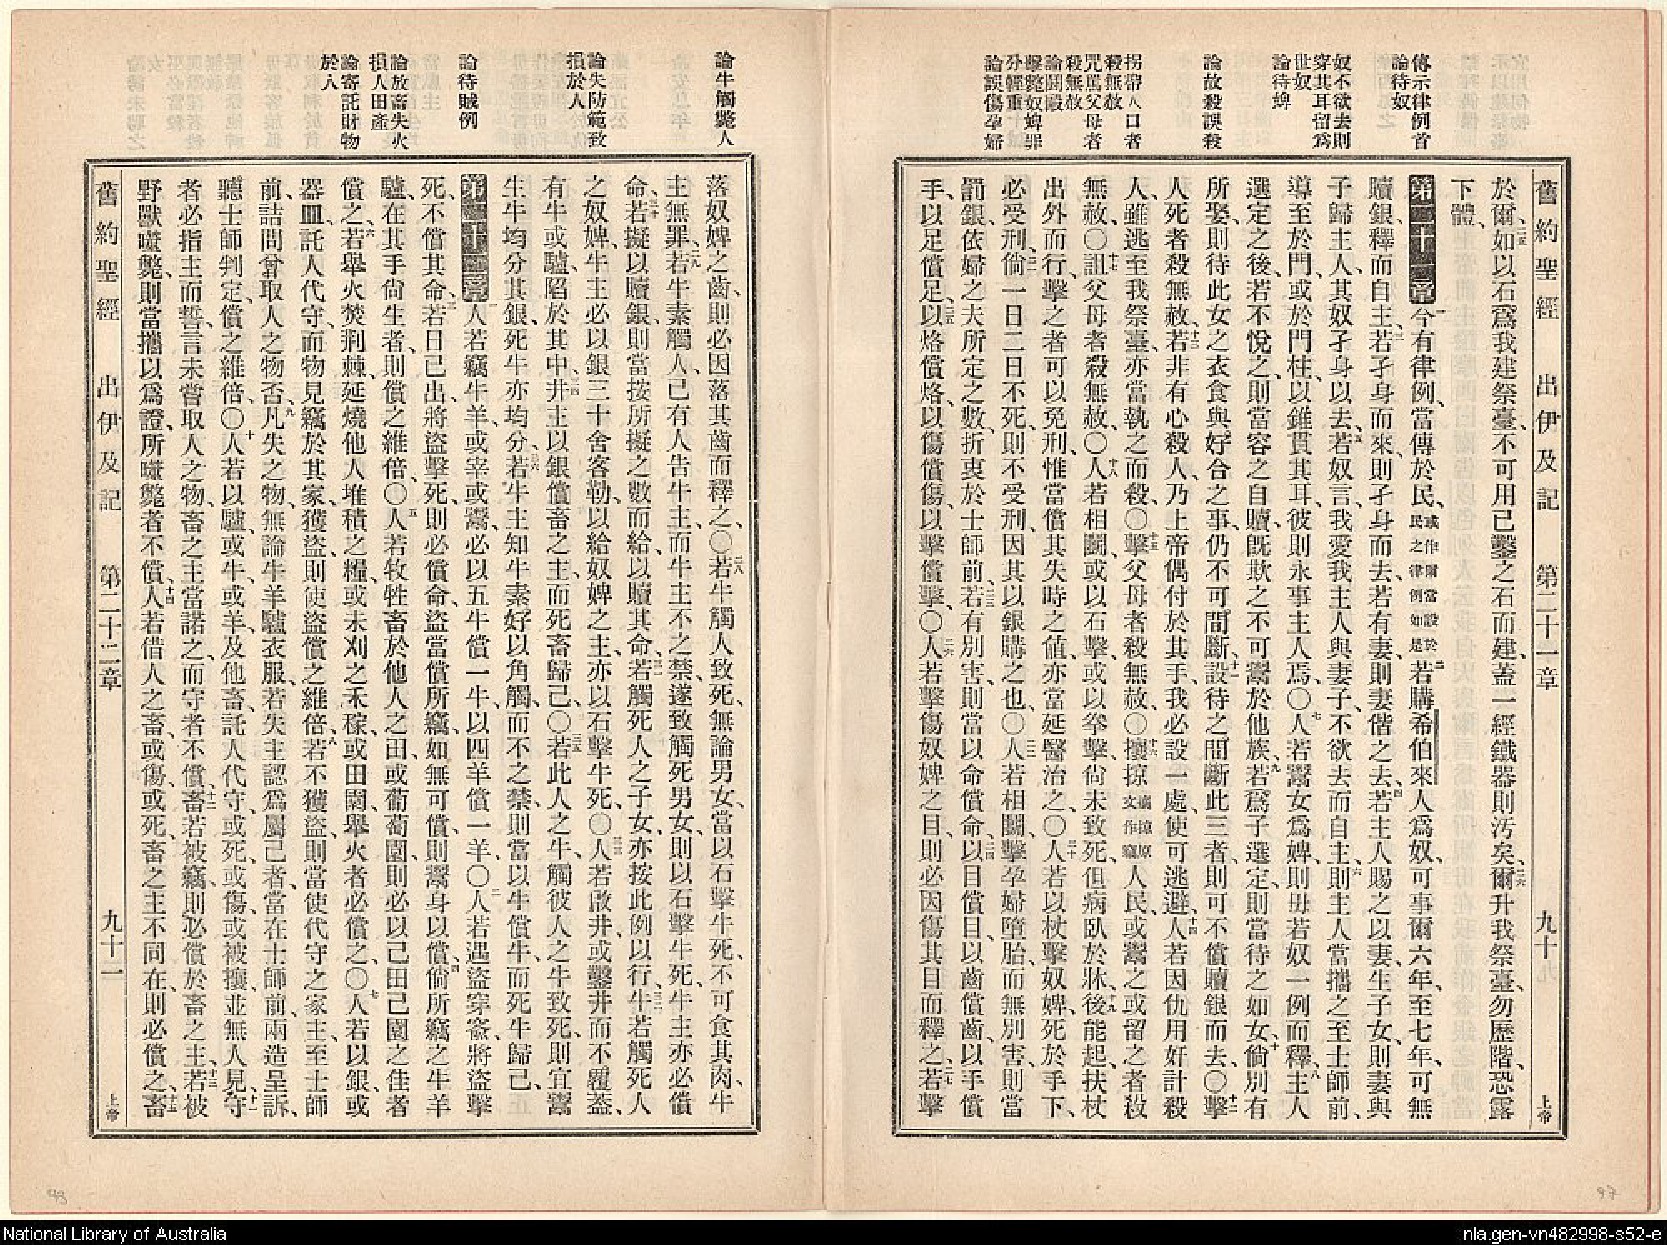 傳示律例首
論待奴
奴不欲去則
穿其耳留爲
世奴
論待婢
論故殺誤殺
拐帶人口者
殺無赦
咒罵父母者
殺無赦
論鬭毆
擊斃奴婢罪
分輕重
論誤傷孕婦
舊約聖經 出伊及記 第二十一章 九十 上帝
於爾、二五如以石爲我建祭臺、不可用已鑿之石而建、蓋一經鐵器則汚矣、二六爾升我祭臺、勿歷階、恐露
下體、
第二十一章 一今有律例、當傳於民、或作爾當設於民之律例如是二若購希伯來人爲奴、可事爾六年、至七年、可無
贖銀、釋而自主、三若孑身而來、則孑身而去、若有妻、則妻偕之去、四若主人賜之以妻、生子女、則妻與
子歸主人、其奴孑身以去、五若奴言、我愛我主人與妻子、不欲去而自主、六則主人當攜之至士師前、
導至於門、或於門柱、以錐貫其耳、彼則永事主人焉、〇七人若鬻女爲婢、則毋若奴一例而釋、八主人
選定之後、若不悅之、則當容之自贖、旣欺之、不可鬻於他族、九若爲子選定、則當待之如女、十倘別有
所娶、則待此女之衣食與好合之事、仍不可間斷、十一設待之間斷此三者、則可不償贖銀而去、〇十二擊
人死者、殺無赦、十三若非有心殺人、乃上帝偶付於其手、我必設一處、使可逃避、十四人若因仇用奸計殺
人、雖逃至我祭臺、亦當執之而殺、〇十五擊父母者、殺無赦、〇十六攘掠攘掠原文作竊人民、或鬻之或留之者、殺
無赦、〇十七詛父母者、殺無赦、〇十八人若相鬭、或以石擊、或以拳擊、尙未致死、但病臥於牀、十九後能起、扶杖
出外而行、擊之者可以免刑、惟當償其失時之値、亦當延醫治之、〇二十人若以杖擊奴婢、死於手下、
必受刑、二一倘一日二日不死、則不受刑、因其以銀購之也、〇二二人若相鬭、擊孕婦墮胎、而無別害、則當
罰銀、依婦之夫所定之數、折衷於士師前、二三若有別害、則當以命償命、二四以目償目、以齒償齒、以手償
手、以足償足、二五以烙償烙、以傷償傷、以擊償擊、〇二六人若擊傷奴婢之目、則必因傷其目而釋之、二七若擊
論牛觸斃人
論失防範致
損於人
論待賊例
論放畜失火
損人田產
論寄託財物
於人
落奴婢之齒、則必因落其齒而釋之、〇二八若牛觸人致死、無論男女、當以石擊牛死、不可食其肉、牛
主無罪、二九若牛素觸人、已有人吿牛主、而牛主不之禁、遂致觸死男女、則以石擊牛死、牛主亦必償
命、三十若擬以贖銀、則當按所擬之數而給、以贖其命、三一若觸死人之子女、亦按此例以行、三二牛若觸死人
之奴婢、牛主必以銀三十舍客勒、以給奴婢之主、亦以石擊牛死、〇三三人若啟井、或鑿井而不覆蓋、
有牛或驢、陷於其中、三四井主以銀償畜之主、而死畜歸己、〇三五若此人之牛觸彼人之牛致死、則宜鬻
生牛、均分其銀、死牛亦均分、三六若牛主知牛素好以角觸、而不之禁、則當以牛償牛、而死牛歸己、
第二十二章 一人若竊牛羊、或宰或鬻、必以五牛償一牛、以四羊償一羊、〇二人若遇盜穿窬、將盜擊
死、不償其命、三若日已出、將盜擊死、則必償命、盜當償所竊、如無可償、則鬻身以償、四倘所竊之牛羊
驢在其手尙生者、則償之維倍、〇五人若牧牲畜於他人之田、或葡萄園、則必以己田己園之佳者
償之、六若舉火焚荆棘、延燒他人堆積之糧、或未刈之禾稼、或田園、舉火者必償之、〇七人若以銀或
器皿、託人代守、而物見竊於其家、獲盜、則使盜償之維倍、八若不獲盜、則當使代守之家主、至士師
前、詰問曾取人之物否、九凡失之物、無論牛羊驢衣服、若失主認爲屬己者、當在士師前、兩造呈訴、
聽士師判定、償之維倍、〇十人若以驢、或牛、或羊、及他畜託人代守、或死、或傷、或被攘、並無人見、十一守
者必指主而誓、言未嘗取人之物、畜之主當諾之、而守者不償、十二畜若被竊、則必償於畜之主、十三若被
野獸噬斃、則當攜以爲證、所噬斃者不償、十四人若借人之畜、或傷、或死、畜之主不同在、則必償之、十五畜
舊約聖經 出伊及記 第二十二章 九十一 上帝
98
97
National Library of Australia
nla.gen-vn482998-s52-e